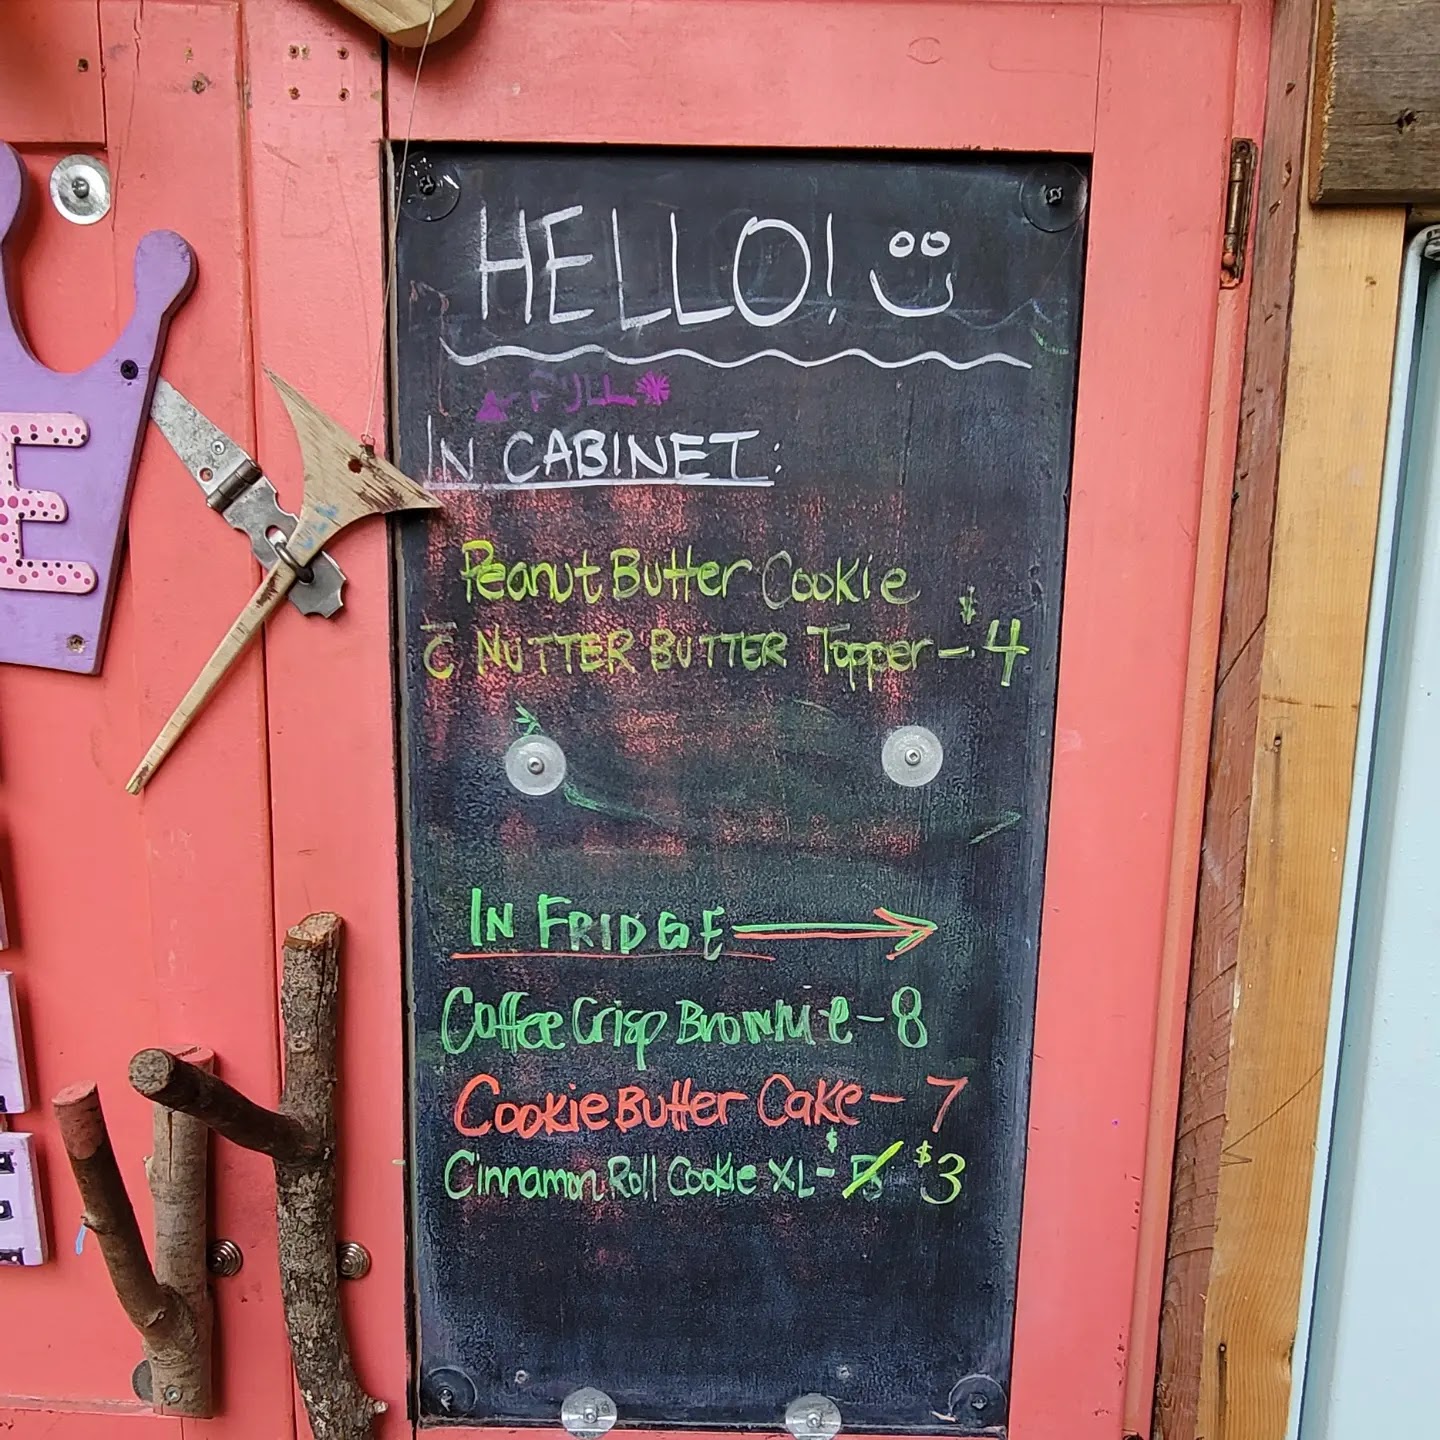 HELLO!
FULL
IN CABINET:
Peanut Butter Cookie
c̄ NUTTER BUTTER Topper - $4
IN FRIDGE
Coffee Crisp Brownie - 8
Cookie Butter Cake - 7
Cinnamon Roll Cookie XL - $5 $3
E